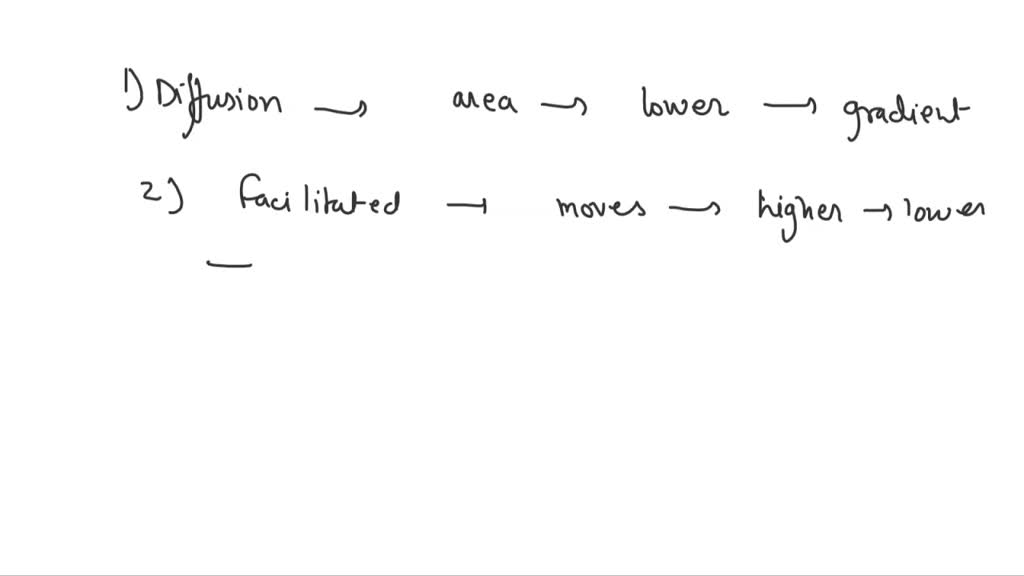 1) Diffusion → area → lower → gradient
2) facilitated → moves → higher → lower